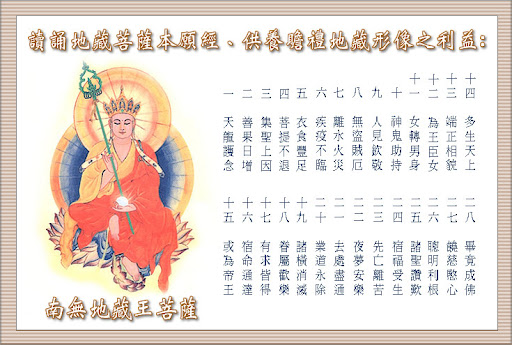 讀誦地藏菩薩本願經、供養瞻禮地藏形像之利益:
一 天龍護念
二 善果日增
三 集聖上因
四 菩提不退
五 衣食豐足
六 疾疫不臨
七 離水火災
八 無盜賊厄
九 人見欽敬
十 神鬼助持
十一 女轉男身
十二 為王臣女
十三 端正相好
十四 多生天上
十五 或為帝王
十六 宿智命通
十七 有求皆從
十八 眷屬歡樂
十九 諸橫消滅
二十 業道永除
二一 去處盡通
二二 夜夢安樂
二三 先亡離苦
二四 宿福受生
二五 諸聖讚歎
二六 聰明利根
二七 饒慈愍心
二八 畢竟成佛
南無地藏王菩薩